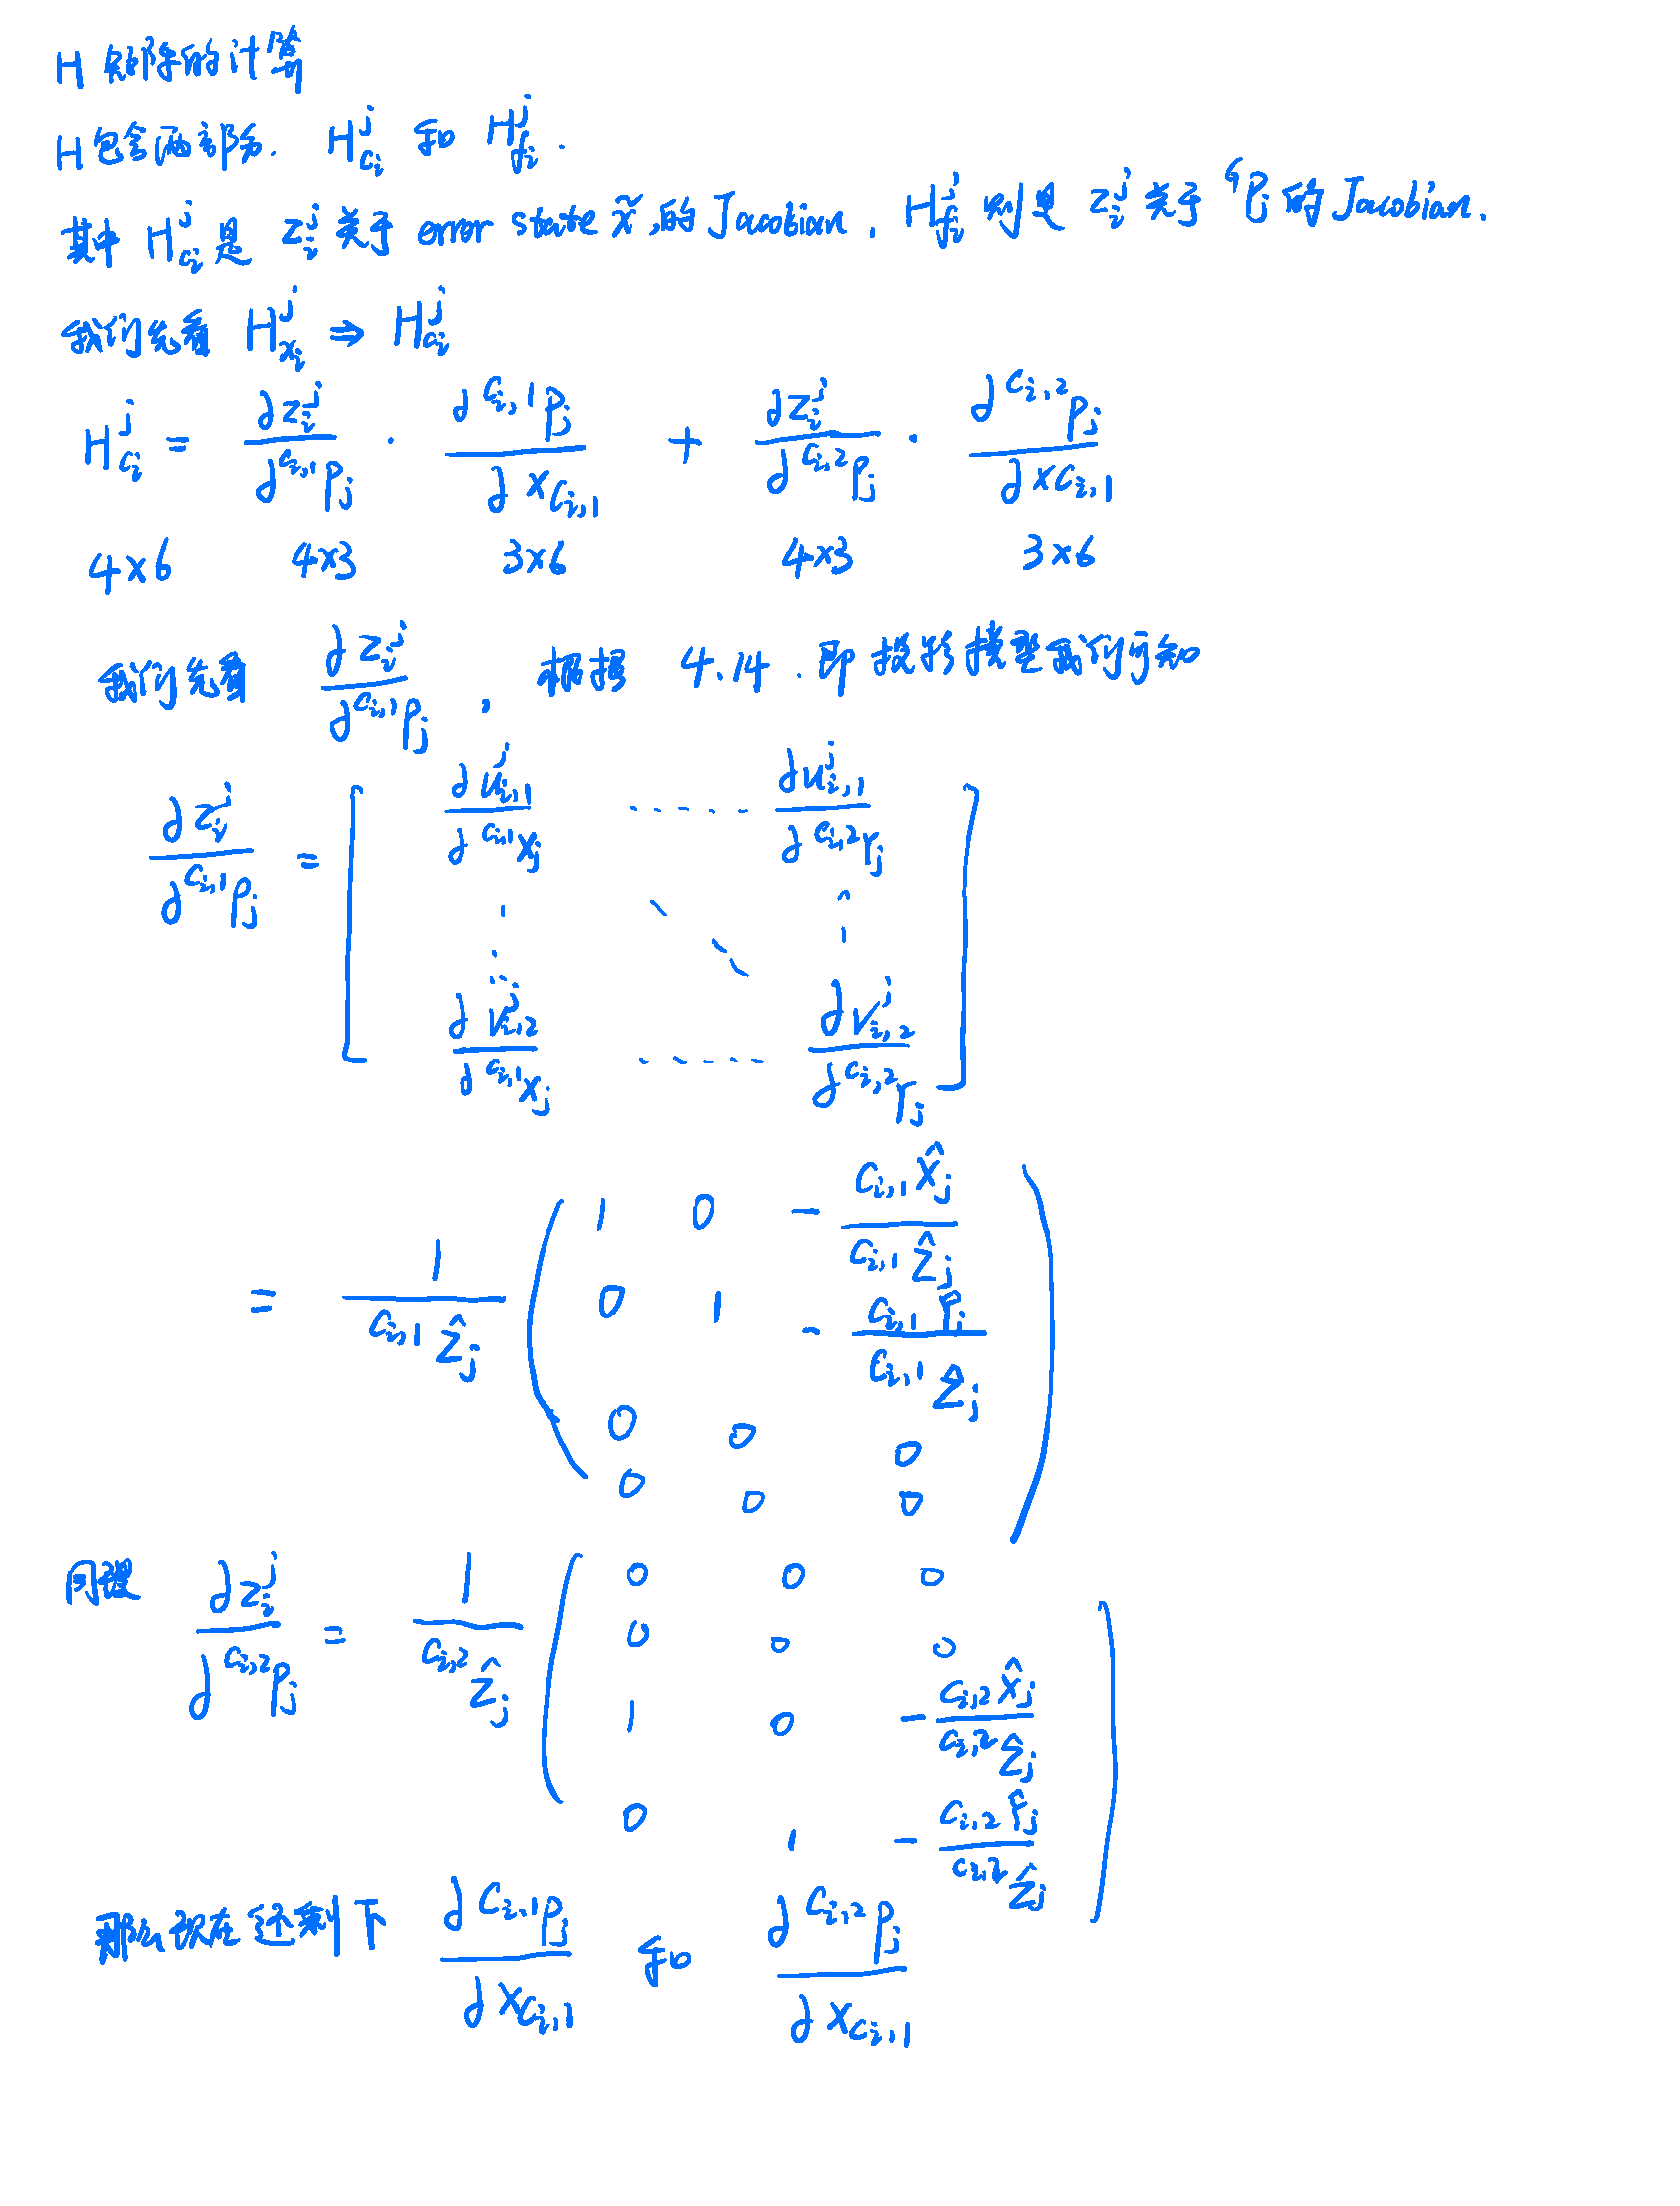 H 矩阵的计算
H包含两部分. H_{C_i}^j 和 H_{f_i}^j .
其中 H_{C_i}^j 是 z_i^j 关于 error state x̃ 的 Jacobian, H_{f_i}^j 则是 z_i^j 关于 ^G p_j 的 Jacobian.
我们先看 H_{x_i}^j ⇒ H_{C_i}^j
H_{C_i}^j = ∂z_i^j / ∂^{C_{i,1}}p_j · ∂^{C_{i,1}}p_j / ∂x_{C_{i,1}} + ∂z_i^j / ∂^{C_{i,2}}p_j · ∂^{C_{i,2}}p_j / ∂x_{C_{i,1}}
4×6 4×3 3×6 4×3 3×6
我们先看 ∂z_i^j / ∂^{C_{i,1}}p_j , 根据 4.14 . 即投影模型我们可知
∂z_i^j / ∂^{C_{i,1}}p_j = [ ∂u_{i,1}^j / ∂^{C_{i,1}}X_j ······ ∂u_{i,1}^j / ∂^{C_{i,2}}Y_j
∂v_{i,2}^j / ∂^{C_{i,1}}X_j ······ ∂v_{i,2}^j / ∂^{C_{i,2}}Y_j ]
= 1 / ^{C_{i,1}}Ẑ_j ( 1 0 - ^{C_{i,1}}X̂_j / ^{C_{i,1}}Ẑ_j
0 1 - ^{C_{i,1}}Ŷ_j / ^{C_{i,1}}Ẑ_j
0 0 0
0 0 0 )
同理 ∂z_i^j / ∂^{C_{i,2}}p_j = 1 / ^{C_{i,2}}Ẑ_j ( 0 0 0
0 0 0
1 0 - ^{C_{i,2}}X̂_j / ^{C_{i,2}}Ẑ_j
0 1 - ^{C_{i,2}}Ŷ_j / ^{C_{i,2}}Ẑ_j )
那么现在还剩下 ∂^{C_{i,1}}p_j / ∂x_{C_{i,1}} 和 ∂^{C_{i,2}}p_j / ∂x_{C_{i,1}}